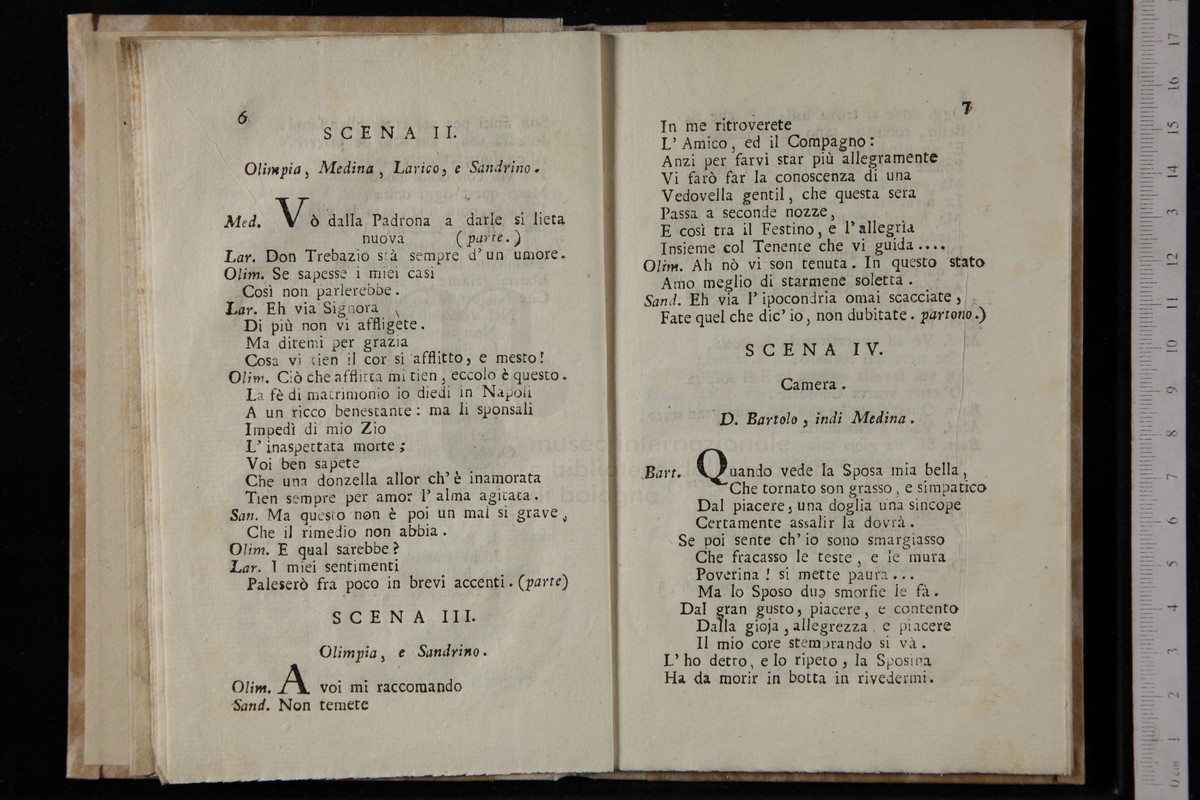 6
SCENA II.
Olimpia, Medina, Larico, e Sandrino.
Med. Vò dalla Padrona a darle sì lieta
nuova (parte.)
Lar. Don Trebazio stà sempre d'un umore.
Olim. Se sapesse i miei casi
Così non parlerebbe.
Lar. Eh via Signora
Di più non vi affligete.
Ma ditemi per grazia
Cosa vi tien il cor si afflitto, e mesto!
Olim. Ciò che afflitta mi tien, eccolo è questo.
La fè di matrimonio io diedi in Napoli
A un ricco benestante: ma li sponsali
Impedì di mio Zio
L'inaspettata morte;
Voi ben sapete
Che una donzella allor ch'è inamorata
Tien sempre per amor l'alma agitata.
San. Ma questo non è poi un mal si grave,
Che il rimedio non abbia.
Olim. E qual sarebbe?
Lar. I miei sentimenti
Paleserò fra poco in brevi accenti. (parte)
SCENA III.
Olimpia, e Sandrino.
Olim. A voi mi raccomando
Sand. Non temete
7
In me ritroverete
L'Amico, ed il Compagno:
Anzi per farvi star più allegramente
Vi farò far la conoscenza di una
Vedovella gentil, che questa sera
Passa a seconde nozze,
E così tra il Festino, e l'allegrìa
Insieme col Tenente che vi guida....
Olim. Ah nò vi son tenuta. In questo stato
Amo meglio di starmene soletta.
Sand. Eh via l'ipocondria omai scacciate,
Fate quel che dic'io, non dubitate. partono.)
SCENA IV.
Camera.
D. Bartolo, indi Medina.
Bart. Quando vede la Sposa mia bella,
Che tornato son grasso, e simpatico
Dal piacere, una doglia una sincope
Certamente assalir la dovrà.
Se poi sente ch'io sono smargiasso
Che fracasso le teste, e le mura
Poverina! si mette paura...
Ma lo Sposo due smorfie le fà.
Dal gran gusto, piacere, e contento
Dalla gioja, allegrezza e piacere
Il mio core stemprando si và.
L'ho detto, e lo ripeto, la Sposina
Ha da morir in botta in rivedermi.
museo internazionale
e biblioteca
di bologna